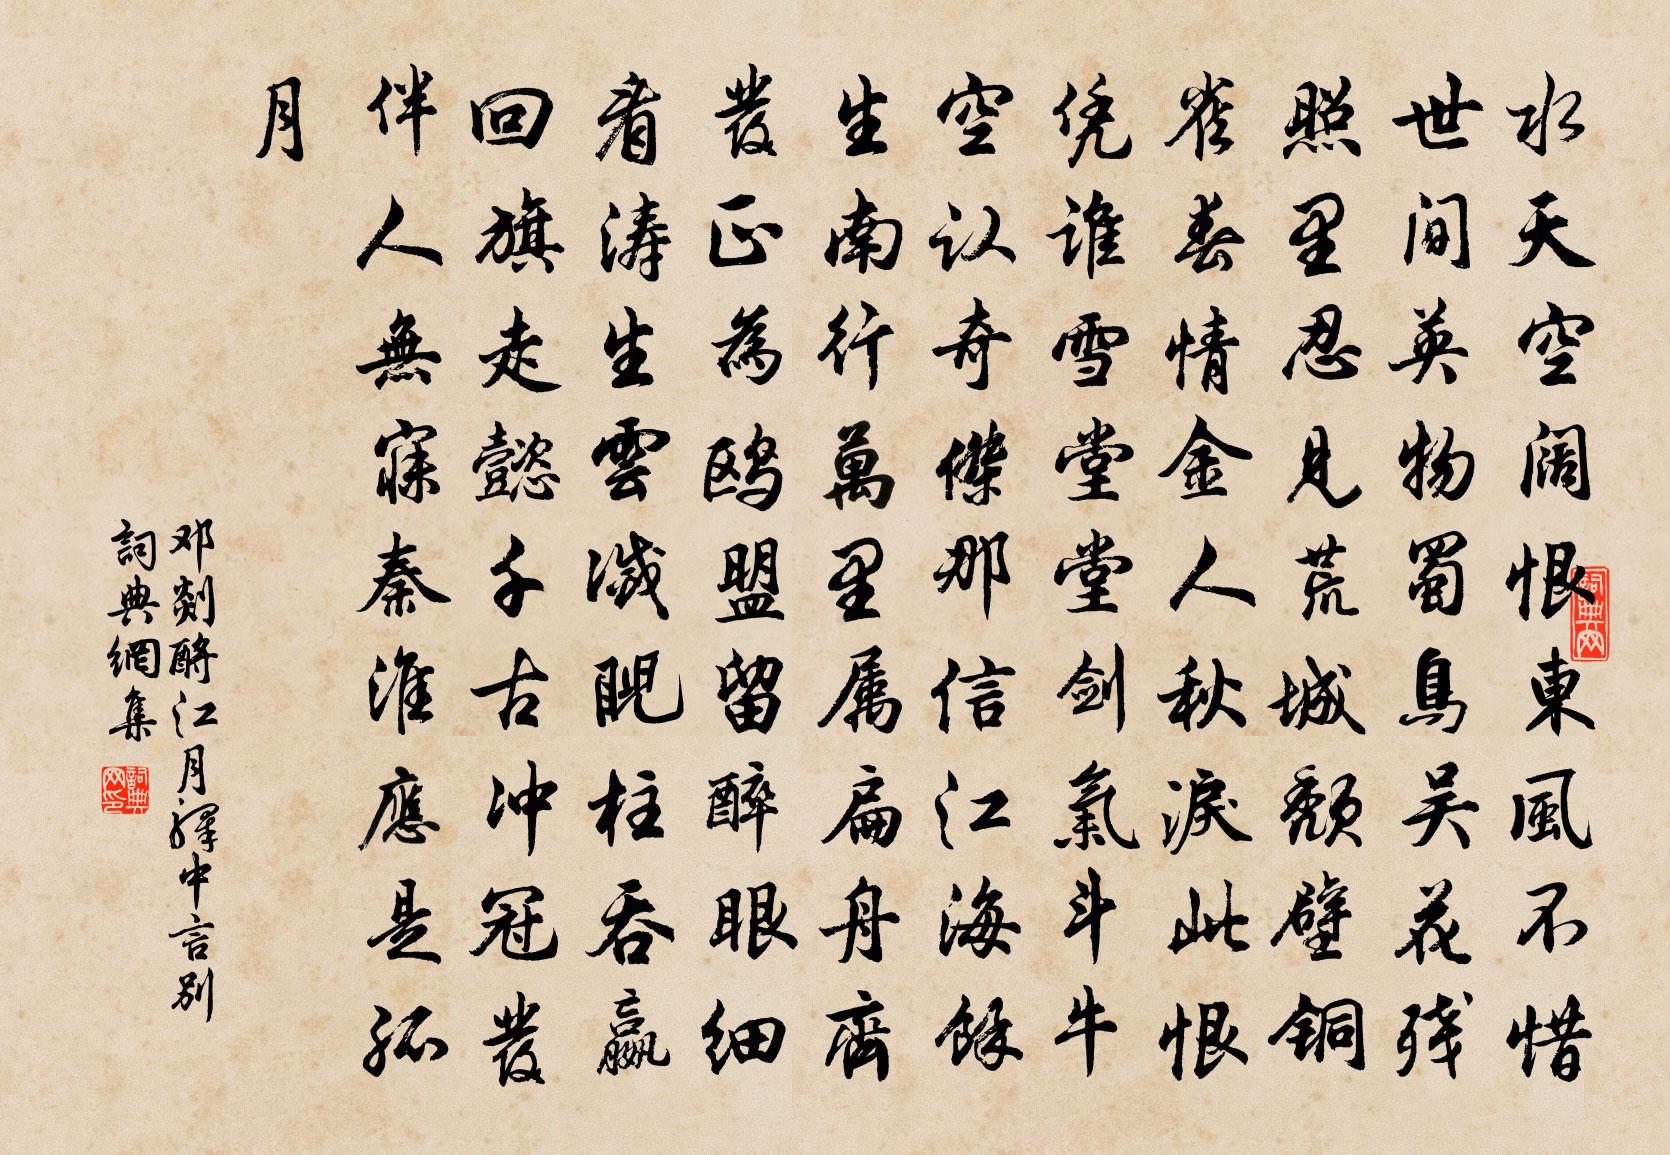 水天空阔恨東風不惜
世間英物蜀鳥吴花残
照里忍見荒城颓壁铜
雀春情金人秋淚此恨
凭谁雪堂堂剑氣斗牛
空认奇傑那信江海餘
生南行萬里属扁舟齊
發正為鸥盟留醉眼细
看涛生雲滅睨柱吞嬴
回旗走懿千古冲冠發
伴人無寐秦淮應是孤
月
邓剡酹江月驛中言别
詞典網集
詞典网
詞典网印